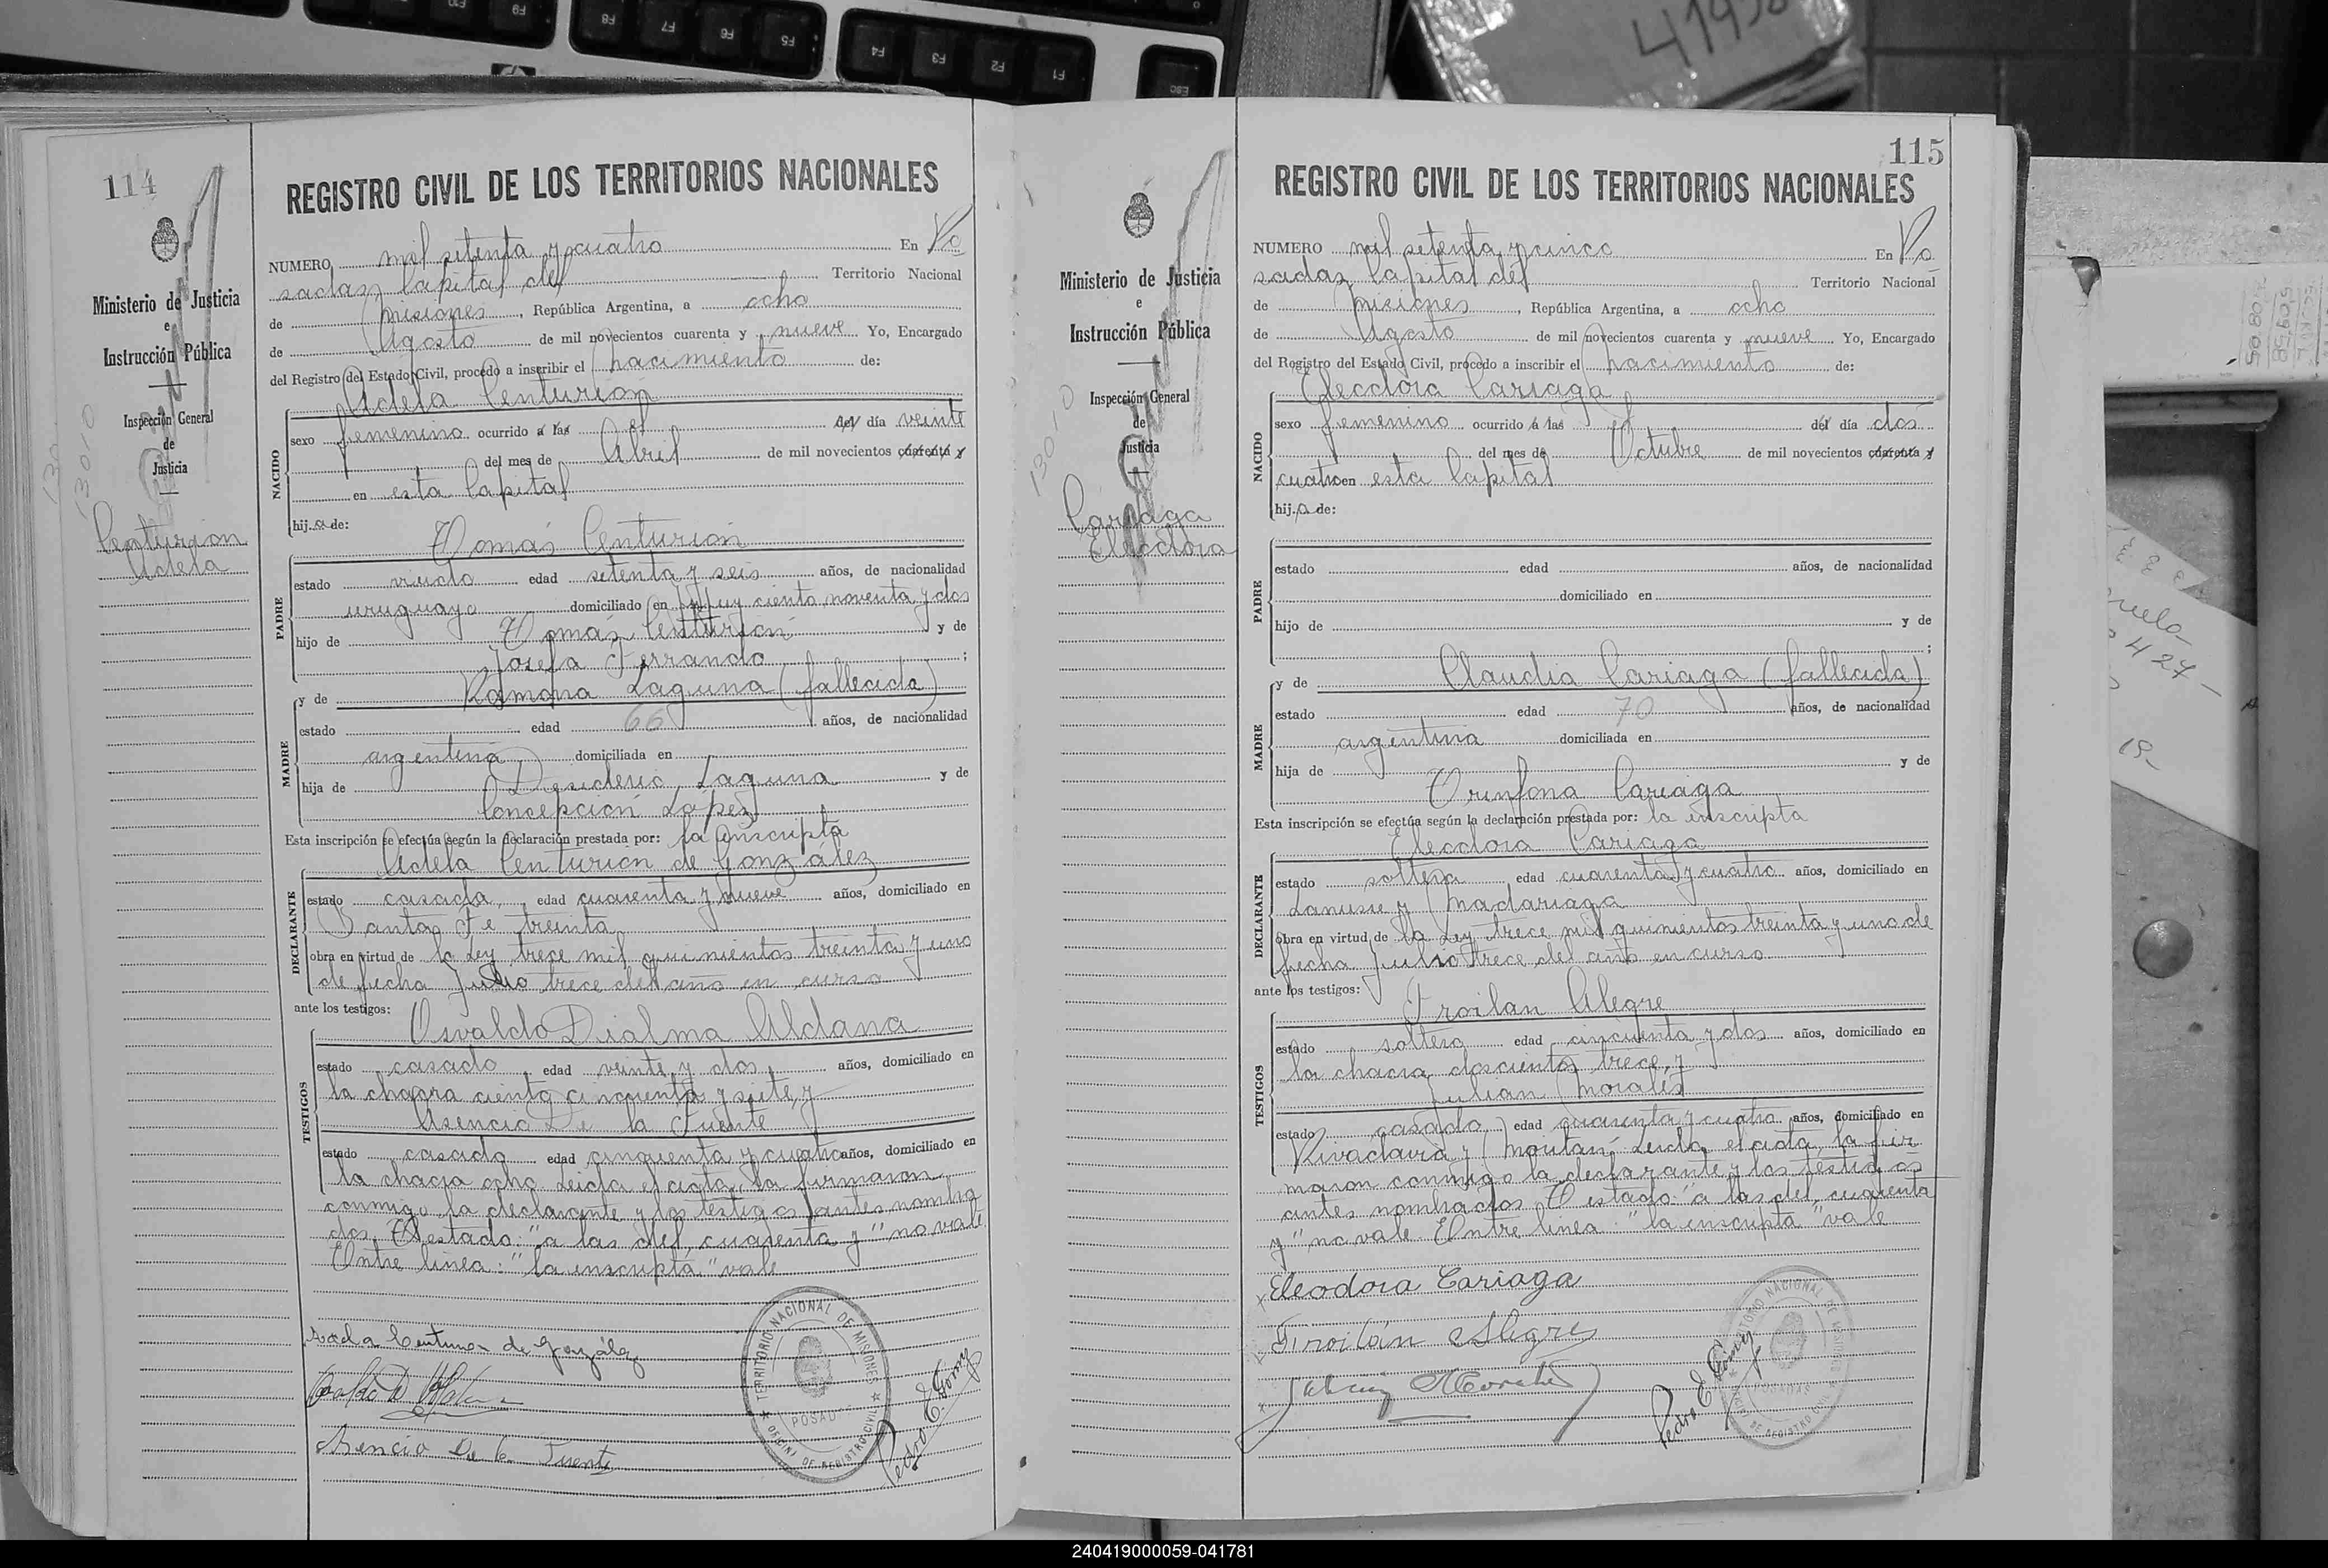 114
Ministerio de Justicia
e
Instrucción Pública
Inspección General
de
Justicia
13010
Centurión
Adela
REGISTRO CIVIL DE LOS TERRITORIOS NACIONALES
NUMERO mil setenta y cuatro En Po
sadas, Capital del Territorio Nacional
de Misiones, República Argentina, a ocho
de Agosto de mil novecientos cuarenta y nueve Yo, Encargado
del Registro del Estado Civil, procedo a inscribir el nacimiento de:
Adela Centurión
NACIDO
sexo femenino ocurrido a las el del día veinte
del mes de Abril de mil novecientos cuarenta y
en esta Capital
hija de:
Tomás Centurión
PADRE
estado viudo edad setenta y seis años, de nacionalidad
uruguayo domiciliado en Jujuy ciento noventa y dos
hijo de Tomás Centurión y de
Josefa Ferrando;
y de Ramona Laguna (fallecida)
MADRE
estado edad 66 años, de nacionalidad
argentina domiciliada en
hija de Desiderio Laguna y de
Concepción López
Esta inscripción se efectúa según la declaración prestada por: la inscripta
Adela Centurión de González
DECLARANTE
estado casada, edad cuarenta y nueve años, domiciliado en
Santa Fe treinta
obra en virtud de la Ley trece mil quinientos treinta y uno
de fecha Julio trece del año en curso
ante los testigos:
Osvaldo Dialma Aldana
TESTIGOS
estado casado edad veinte y dos años, domiciliado en
la chacra ciento cincuenta y siete, y
Asencio De la Fuente
estado casado edad cincuenta y cuatro años, domiciliado en
la chacra ocho. Leída el acta, la firmaron
conmigo la declarante y los testigos antes nombra
dos. Testado: "a las del, cuarenta y" no vale
Entre linea: "la inscripta" vale
Adela Centurion de González
Asencio De la Fuente
TERRITORIO NACIONAL DE MISIONES
POSADAS
OFICINA DE REGISTRO CIVIL
Pedro E. Gomez
115
Ministerio de Justicia
e
Instrucción Pública
Inspección General
de
Justicia
13010
Cariaga
Eleodora
REGISTRO CIVIL DE LOS TERRITORIOS NACIONALES
NUMERO mil setenta y cinco En Po
sadas, Capital del Territorio Nacional
de Misiones, República Argentina, a ocho
de Agosto de mil novecientos cuarenta y nueve Yo, Encargado
del Registro del Estado Civil, procedo a inscribir el nacimiento de:
Eleodora Cariaga
NACIDO
sexo femenino ocurrido a las el del día dos
del mes de Octubre de mil novecientos cuarenta y
cuatro en esta Capital
hija de:
PADRE
estado edad años, de nacionalidad
domiciliado en
hijo de y de
;
y de Claudia Cariaga (fallecida)
MADRE
estado edad 70 años, de nacionalidad
argentina domiciliada en
hija de y de
Trinfona Cariaga
Esta inscripción se efectúa según la declaración prestada por: la inscripta
Eleodora Cariaga
DECLARANTE
estado soltera edad cuarenta y cuatro años, domiciliado en
Lanusse y Madariaga
obra en virtud de la Ley trece mil quinientos treinta y uno de
fecha Julio trece del año en curso
ante los testigos:
Froilan Alegre
TESTIGOS
estado soltero edad cincuenta y dos años, domiciliado en
la chacra doscientos trece, y
Julian Morales
estado casado, edad cuarenta y cuatro años, domiciliado en
Rivadavia y Moritán. Leída el acta, la fir
maron conmigo la declarante y los testigos
antes nombrados. Testado: "a las del, cuarenta
y" no vale. Entre linea: "la inscripta" vale
Eleodora Cariaga
Froilán Alegre
Julian Morales
Pedro E. Gomez
TERRITORIO NACIONAL DE MISIONES
POSADAS
OFICINA DE REGISTRO CIVIL
F9
F8
F7
F6
F5
F4
F3
F2
F1
ESC
240419000059-041781